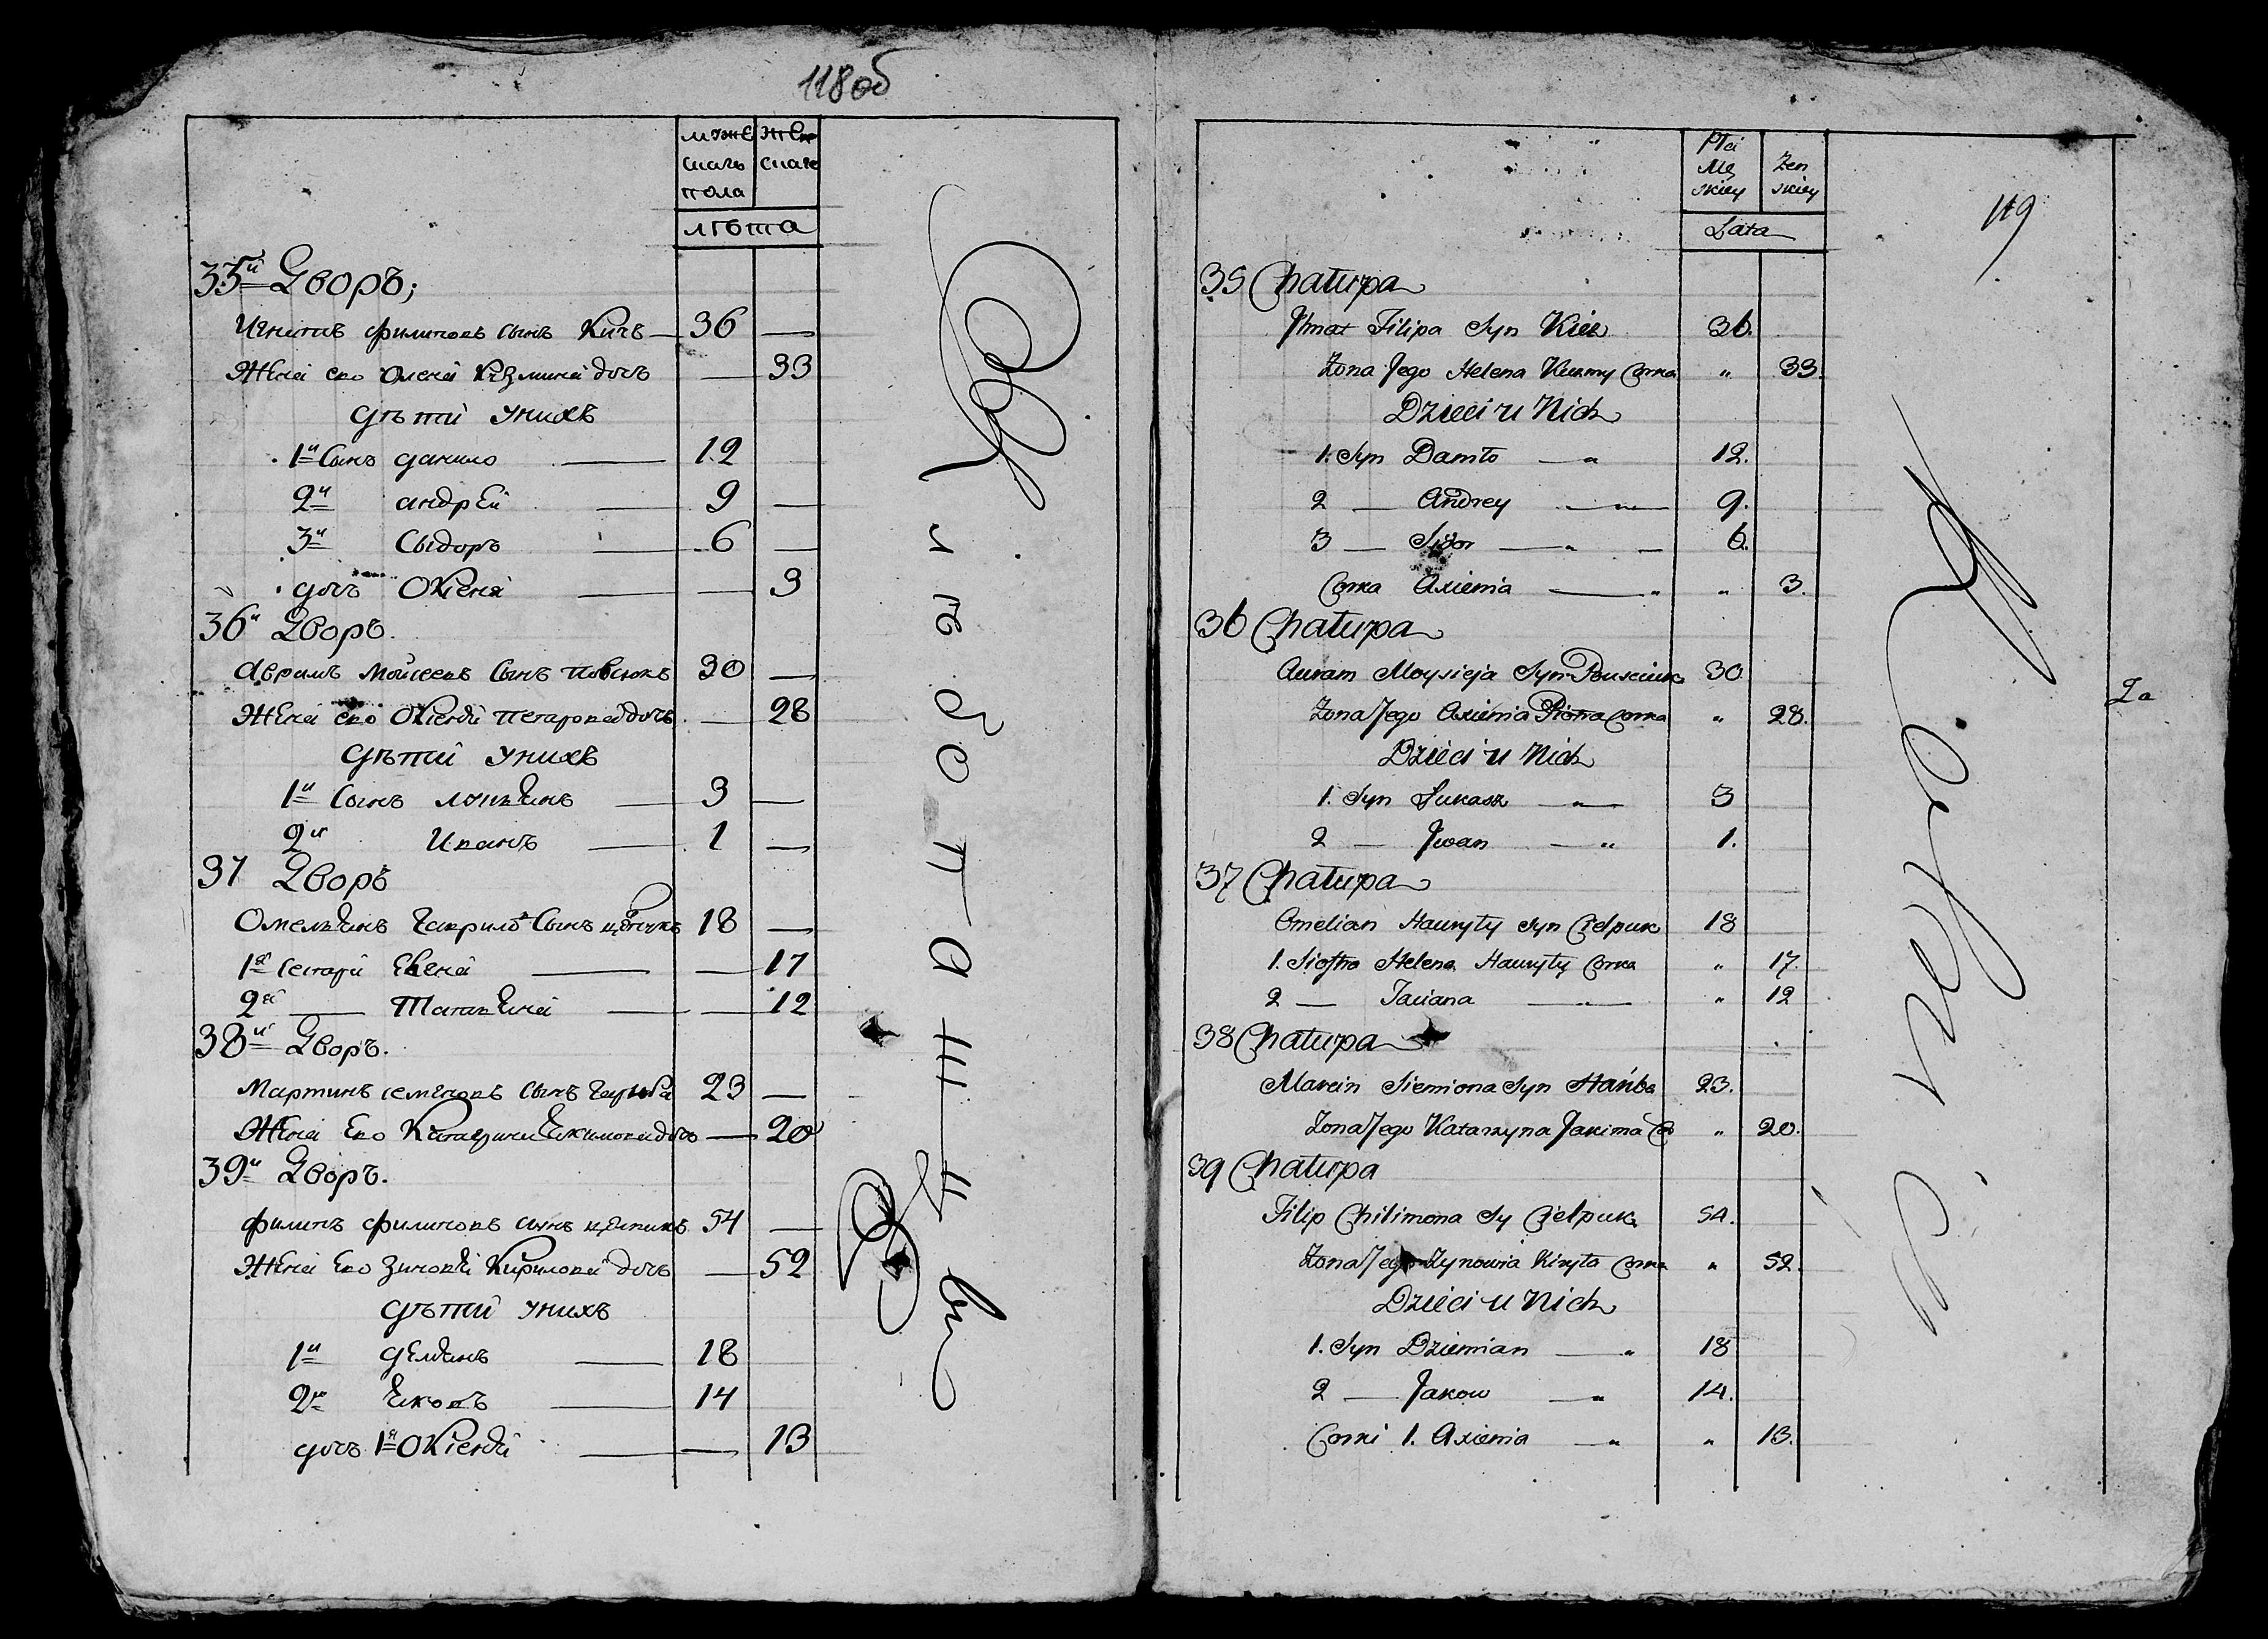 118об
муже жен
скаго скаго
пола
лѣта
35й Дворъ;
Игнатъ филиповъ сынъ Кичъ — 36 —
Жена его Олена Кузмина дочъ — 33
Дѣти у нихъ
1й Сынъ данило — 12
2й андрей — 9 —
3й Сыдоръ — 6 —
дочъ Оксеня — — 3
36й Дворъ.
Аврамъ Мойсеевъ Сынъ повсюкъ 30 —
Жена его Оксеня петрова дочъ — 28
Дѣти у нихъ
1й Сынъ лукянъ — 3 —
2й Иванъ — 1 —
37 Дворъ
Омелянъ Гаврилов Сынъ 18 —
1я сестра Евена — — 17
2я — Татьяна — — 12
38й Дворъ.
Мартинъ семѣновъ сынъ 23 —
Жена Его Катерина Екимова дочъ — 20
39й Дворъ.
филипъ филимовъ сынъ 54 —
Жена Его Зиновея Кирилова дочъ — 52
Дѣти у нихъ
1й демянъ — 18
2й Яковъ — 14
дочъ 1я Оксеня — — 13
119
Płci
Mę Żen
skiey skiey
Lata
35 Chałupa
Ihnat Filipa Syn Kicz 36.
Żona Jego Helena Kuzmy Corka „ 33.
Dzieci u Nich
1. Syn Daniło — „ 12.
2 — Andrey — „ — 9.
3 — Sidor — „ — 6.
Corka Axienia — „ „ 3.
36 Chałupa
Auram Moysieja Syn Pousciuk 30.
Żona Jego Axienia Piotra Corka „ 28.
Dzieci u Nich
1. Syn Łukasz — „ — 3
2 — Jwan — „ 1.
37 Chałupa
Omelian Hauryły Syn Ciełpuk 18
1. Siostra Helena Hauryły Corka „ 17.
2 — Taciana — „ — „ 12
38 Chałupa
Marcin Siemiona Syn Hańba 23.
Żona Jego Katarzyna Jakima Co „ 20.
39 Chałupa
Filip Chilimona Sy Ciełpuk 54.
Żona Jego Zynowia Kiryło Corka „ 52.
Dzieci u Nich
1. Syn Dziemian — „ 18
2 — Jakow — „ 14.
Corki 1. Axienia — „ „ 13.
La